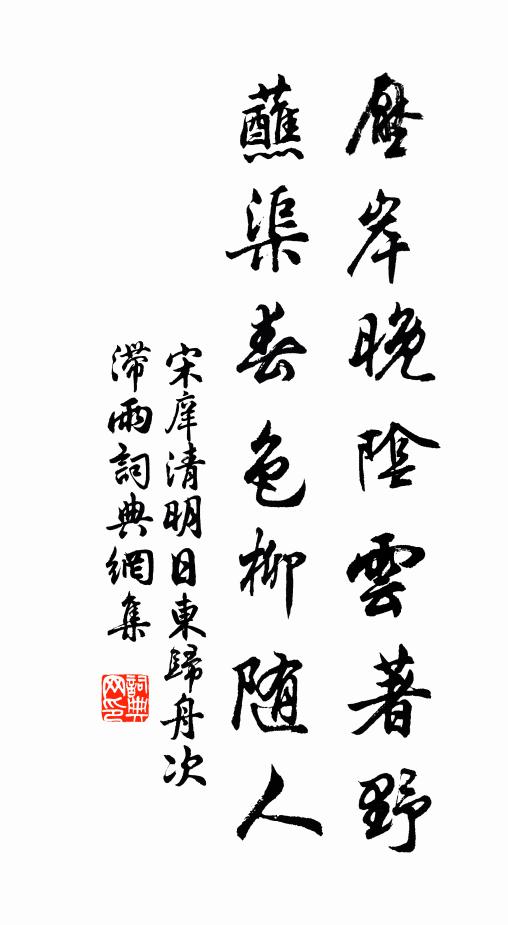 壓岸晚陰雲著野
蘸渠春色柳随人
宋庠清明日東歸舟次
滯雨詞典網集
詞典
网印